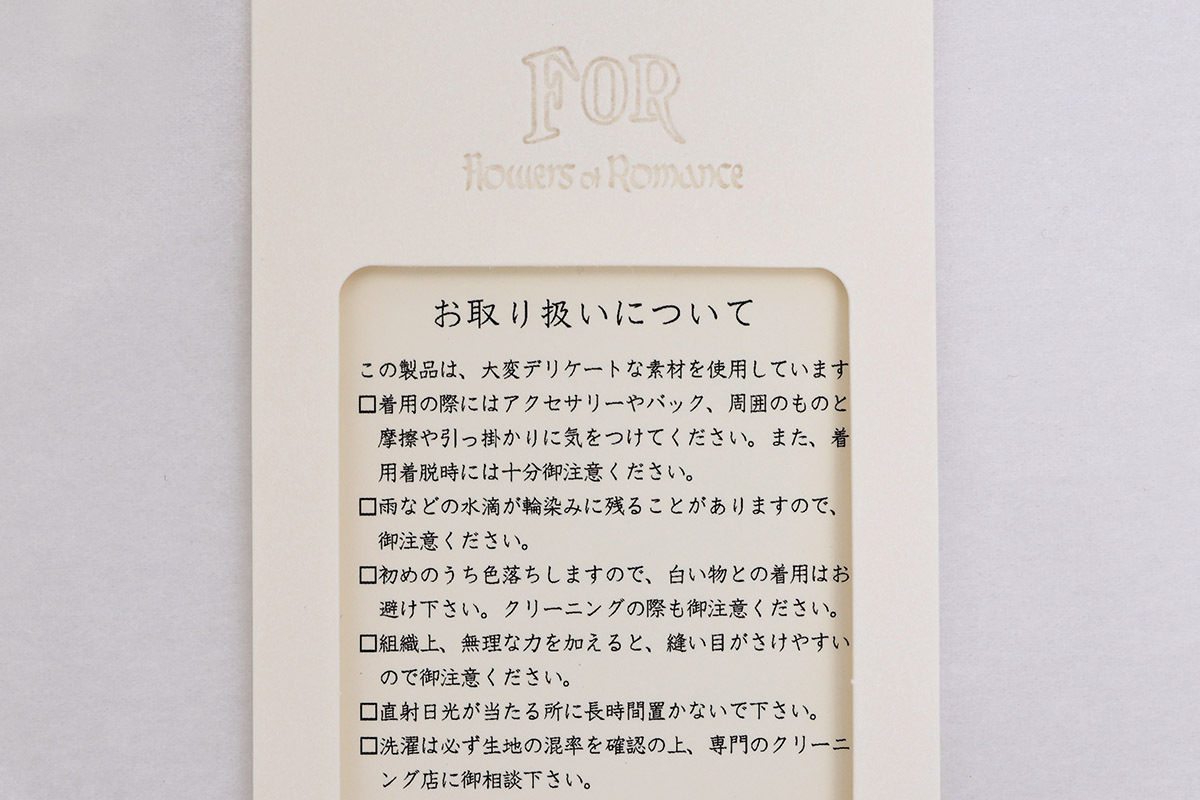 FOR
flowers of Romance
お取り扱いについて
この製品は、大変デリケートな素材を使用しています
□着用の際にはアクセサリーやバック、周囲のものと
摩擦や引っ掛かりに気をつけてください。また、着
用着脱時には十分御注意ください。
□雨などの水滴が輪染みに残ることがありますので、
御注意ください。
□初めのうち色落ちしますので、白い物との着用はお
避け下さい。クリーニングの際も御注意ください。
□組織上、無理な力を加えると、縫い目がさけやすい
ので御注意ください。
□直射日光が当たる所に長時間置かないで下さい。
□洗濯は必ず生地の混率を確認の上、専門のクリーニ
ング店に御相談下さい。